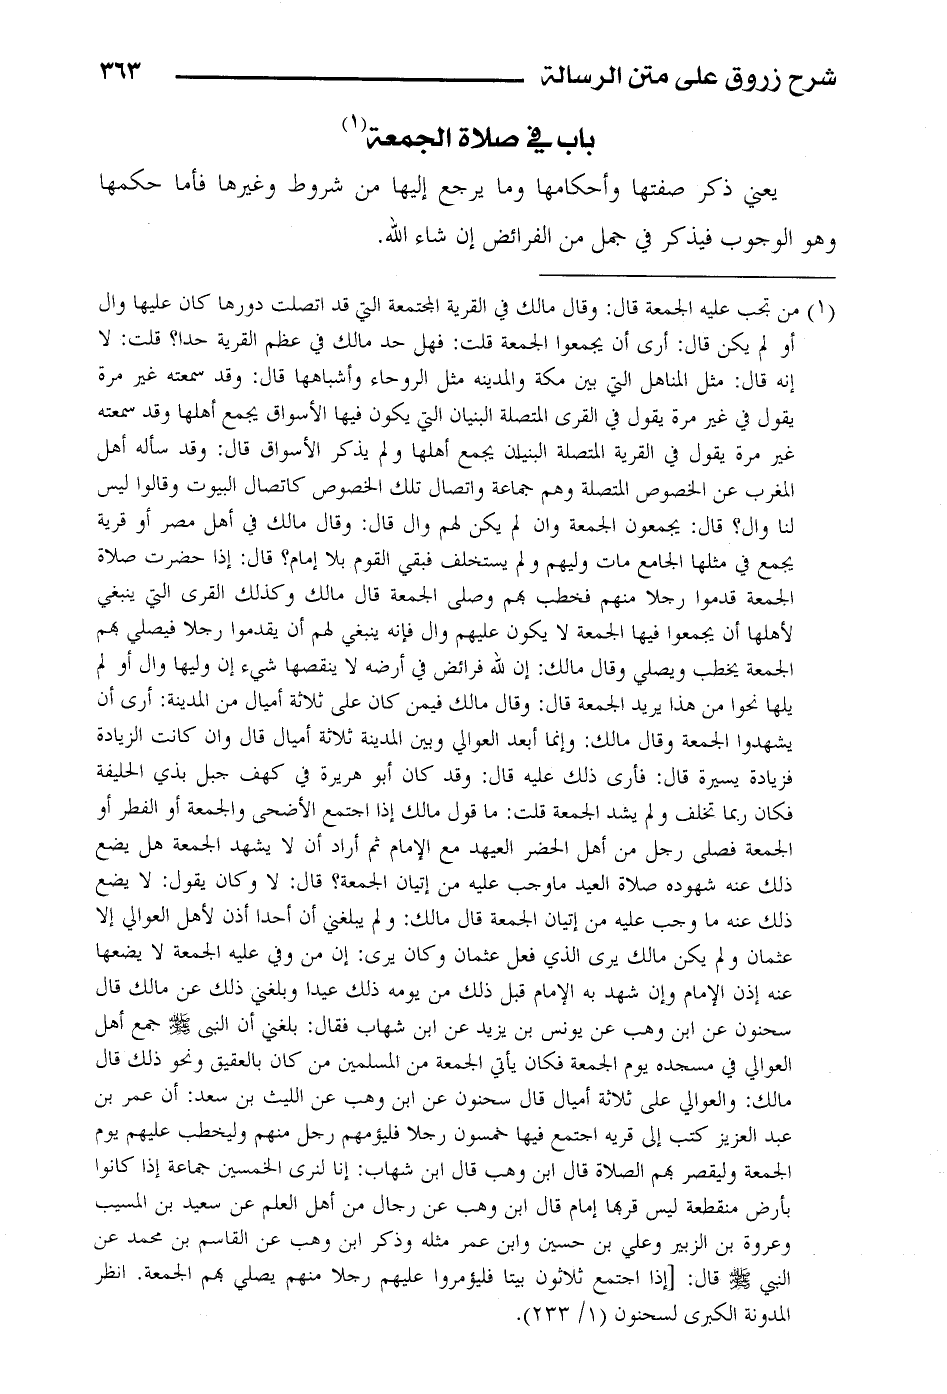 شرح زروق على متن الرسالة ٣٦٣
باب في صلاة الجمعة(١)
يعني ذكر صفتها وأحكامها وما يرجع إليها من شروط وغيرها فأما حكمها
وهو الوجوب فيذكر في جمل من الفرائض إن شاء الله.
(١) من تجب عليه الجمعة قال: وقال مالك في القرية المجتمعة التي قد اتصلت دورها كان عليها وال
أو لم يكن قال: أرى أن يجمعوا الجمعة قلت: فهل حد مالك في عظم القرية حدا؟ قلت: لا
إنه قال: مثل المناهل التي بين مكة والمدينه مثل الروحاء وأشباهها قال: وقد سمعته غير مرة
يقول في غير مرة يقول في القرى المتصلة البنيان التي يكون فيها الأسواق يجمع أهلها وقد سمعته
غير مرة يقول في القرية المتصلة البنيان يجمع أهلها ولم يذكر الأسواق قال: وقد سأله أهل
المغرب عن الخصوص المتصلة وهم جماعة واتصال تلك الخصوص كاتصال البيوت وقالوا ليس
لنا وال؟ قال: يجمعون الجمعة وان لم يكن لهم وال قال: وقال مالك في أهل مصر أو قرية
يجمع في مثلها الجامع مات وليهم ولم يستخلف فبقي القوم بلا إمام؟ قال: إذا حضرت صلاة
الجمعة قدموا رجلا منهم فخطب بهم وصلى الجمعة قال مالك وكذلك القرى التي ينبغي
لأهلها أن يجمعوا فيها الجمعة لا يكون عليهم وال فإنه ينبغي لهم أن يقدموا رجلا فيصلي بهم
الجمعة يخطب ويصلي وقال مالك: إن لله فرائض في أرضه لا ينقصها شيء إن وليها وال أو لم
يلها نحوا من هذا يريد الجمعة قال: وقال مالك فيمن كان على ثلاثة أميال من المدينة: أرى أن
يشهدوا الجمعة وقال مالك: وإنما أبعد العوالي وبين المدينة ثلاثة أميال قال وان كانت الزيادة
فزيادة يسيرة قال: فأرى ذلك عليه قال: وقد كان أبو هريرة في كهف جبل بذي الحليفة
فكان ربما تخلف ولم يشد الجمعة قلت: ما قول مالك إذا اجتمع الأضحى والجمعة أو الفطر أو
الجمعة فصلى رجل من أهل الحضر العيهد مع الإمام ثم أراد أن لا يشهد الجمعة هل يضع
ذلك عنه شهوده صلاة العيد ماوجب عليه من إتيان الجمعة؟ قال: لا وكان يقول: لا يضع
ذلك عنه ما وجب عليه من إتيان الجمعة قال مالك: ولم يبلغني أن أحدا أذن لأهل العوالي إلا
عثمان ولم يكن مالك يرى الذي فعل عثمان وكان يرى: إن من وفي عليه الجمعة لا يضعها
عنه إذن الإمام وإن شهد به الإمام قبل ذلك من يومه ذلك عيدا وبلغني ذلك عن مالك قال
سحنون عن ابن وهب عن يونس بن يزيد عن ابن شهاب فقال: بلغني أن النبى ﷺ جمع أهل
العوالي في مسجده يوم الجمعة فكان يأتي الجمعة من المسلمين من كان بالعقيق ونحو ذلك قال
مالك: والعوالي على ثلاثة أميال قال سحنون عن ابن وهب عن الليث بن سعد: أن عمر بن
عبد العزيز كتب إلى قريه اجتمع فيها خمسون رجلا فليؤمهم رجل منهم وليخطب عليهم يوم
الجمعة وليقصر بهم الصلاة قال ابن وهب قال ابن شهاب: إنا لنرى الخمسين جماعة إذا كانوا
بأرض منقطعة ليس قربها إمام قال ابن وهب عن رجال من أهل العلم عن سعيد بن المسيب
وعروة بن الزبير وعلي بن حسين وابن عمر مثله وذكر ابن وهب عن القاسم بن محمد عن
النبي ﷺ قال: [إذا اجتمع ثلاثون بيتا فليؤمروا عليهم رجلا منهم يصلي بهم الجمعة. انظر
المدونة الكبرى لسحنون (١/ ٢٣٣).